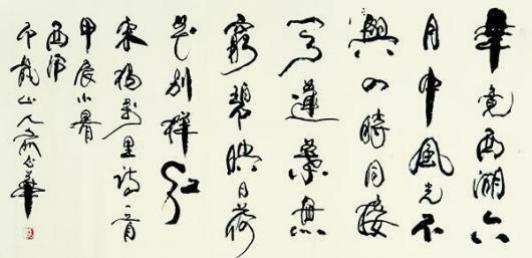 畢竟西湖六
月中風光不
與四時同接
天蓮葉無
窮碧映日荷
花別樣紅
宋楊萬里詩一首
甲辰小暑
龍山